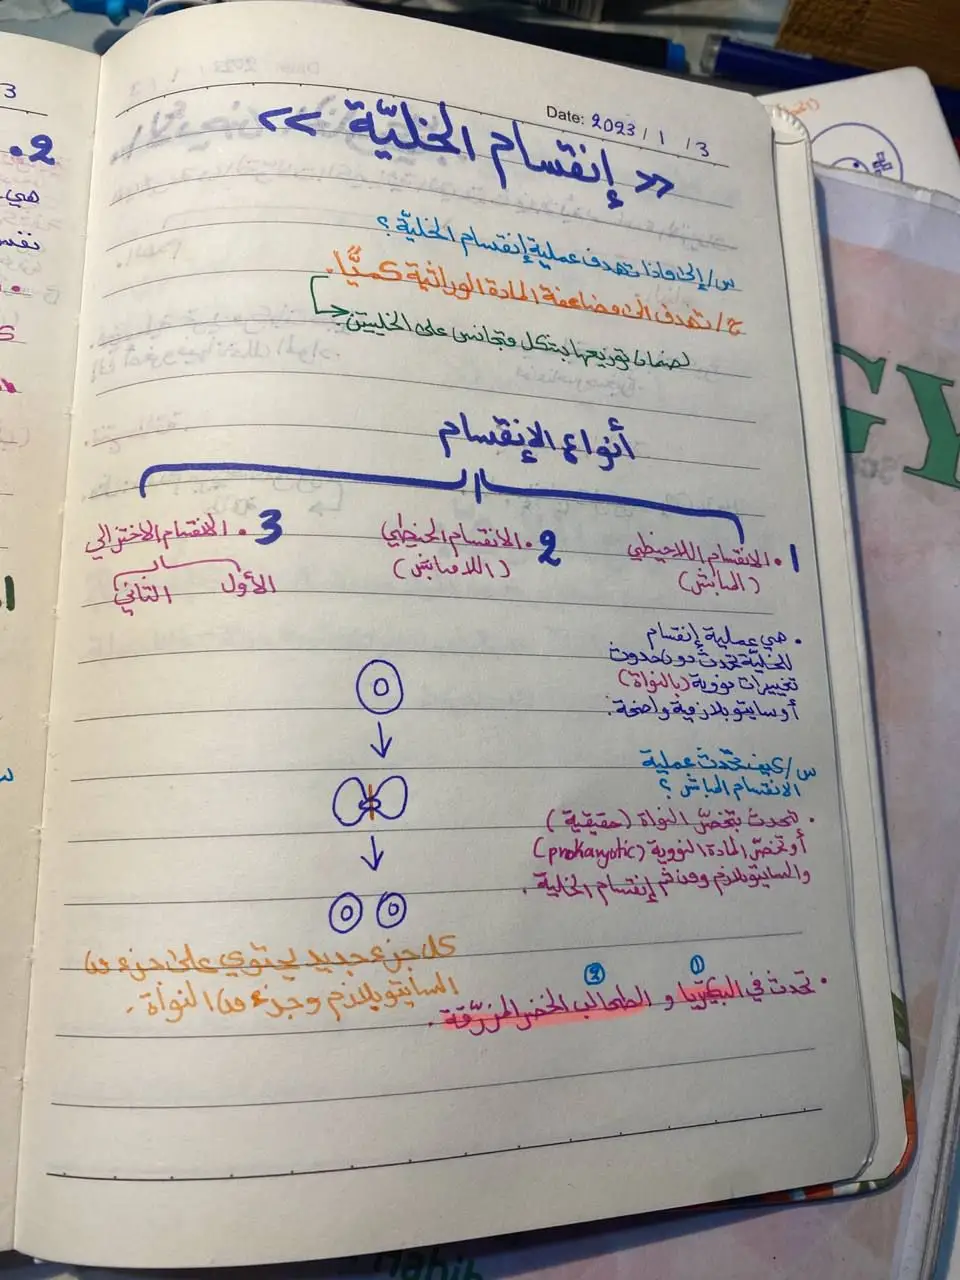 Date: 2023 / 1 / 3
« إنقسام الخليّة »
س/ إلى ماذا تهدف عملية إنقسام الخليّة ؟
ج/ تهدف الى مضاعفة المادة الوراثية كميًّا.
لضمان توزيعها بشكل متجانس على الخليتين
أنواع الإنقسام
1. الانقسام اللاخيطي
(المباشر)
2. الانقسام الخيطي
(اللامباشر)
3. الانقسام الاختزالي
الأول الثاني
. هي عملية إنقسام
للخليّة تحدث دون حدوث
تغييرات نووية (بالنواة)
أو سايتوبلازمية واضحة.
س/ كيف تحدث عملية
الانقسام المباشر ؟
. تحدث بتخصّر النواة (حقيقية)
أو تخصّر المادة النووية (prokaryotic)
والسايتوبلازم ومن ثم إنقسام الخلية .
كل جزء جديد يحتوي على جزء من
السايتوبلازم وجزء من النواة .
① ②
. تحدث في البكتريا و الطحالب الخضر المزرقّة .
3
2.
هي
GY
Habib